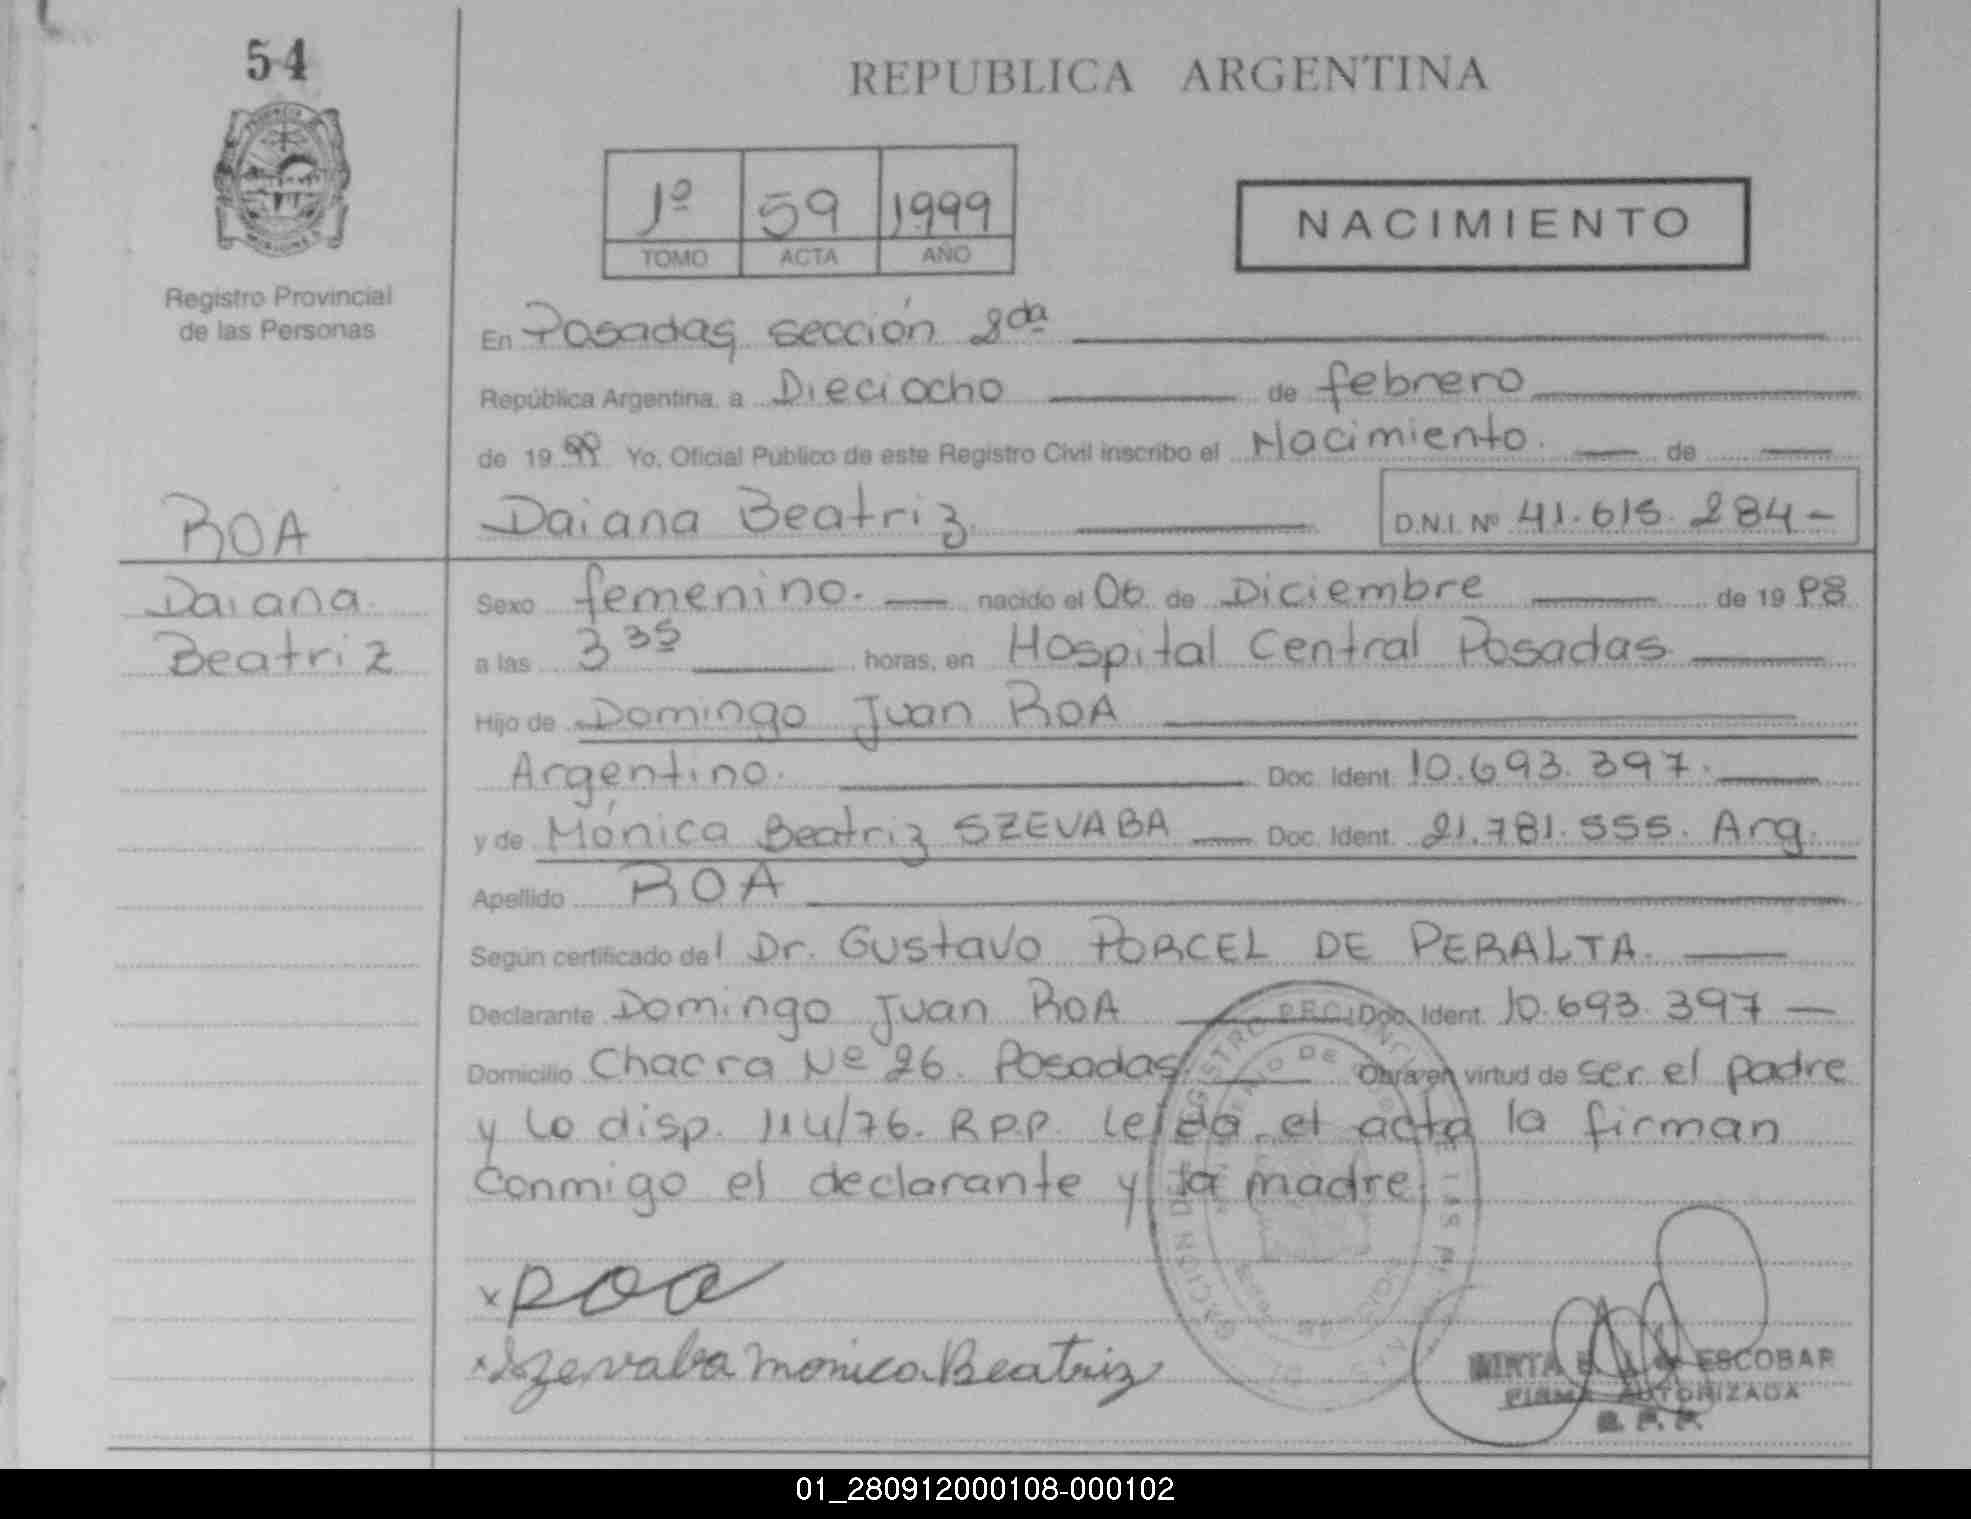 54
REPUBLICA ARGENTINA
1º 59 1999
TOMO ACTA AÑO
NACIMIENTO
Registro Provincial
de las Personas
En Posadas, sección 2da
República Argentina, a Dieciocho de febrero
de 1999 Yo, Oficial Público de este Registro Civil inscribo el Nacimiento. de
ROA
Daiana Beatriz D.N.I. Nº 41.615.284-
Daiana
Beatriz
Sexo femenino. nacido el 06 de Diciembre de 1998
a las 3 35 horas, en Hospital Central Posadas
Hijo de Domingo Juan ROA
Argentino. Doc. Ident. 10.693.397.
y de Mónica Beatriz SZEVABA Doc. Ident. 21.781.555. Arg.
Apellido ROA
Según certificado del Dr. Gustavo PORCEL DE PERALTA.
Declarante Domingo Juan ROA Doc. Ident. 10.693.397
Domicilio Chacra Nº 26. Posadas Obra en virtud de ser el padre
y lo disp. 114/76. R.P.P. leida el acta la firman
conmigo el declarante y la madre
x Roa
x Szevaba Monica Beatriz
MIRTA ESCOBAR
FIRMA AUTORIZADA
R. P. P.
01_280912000108-000102